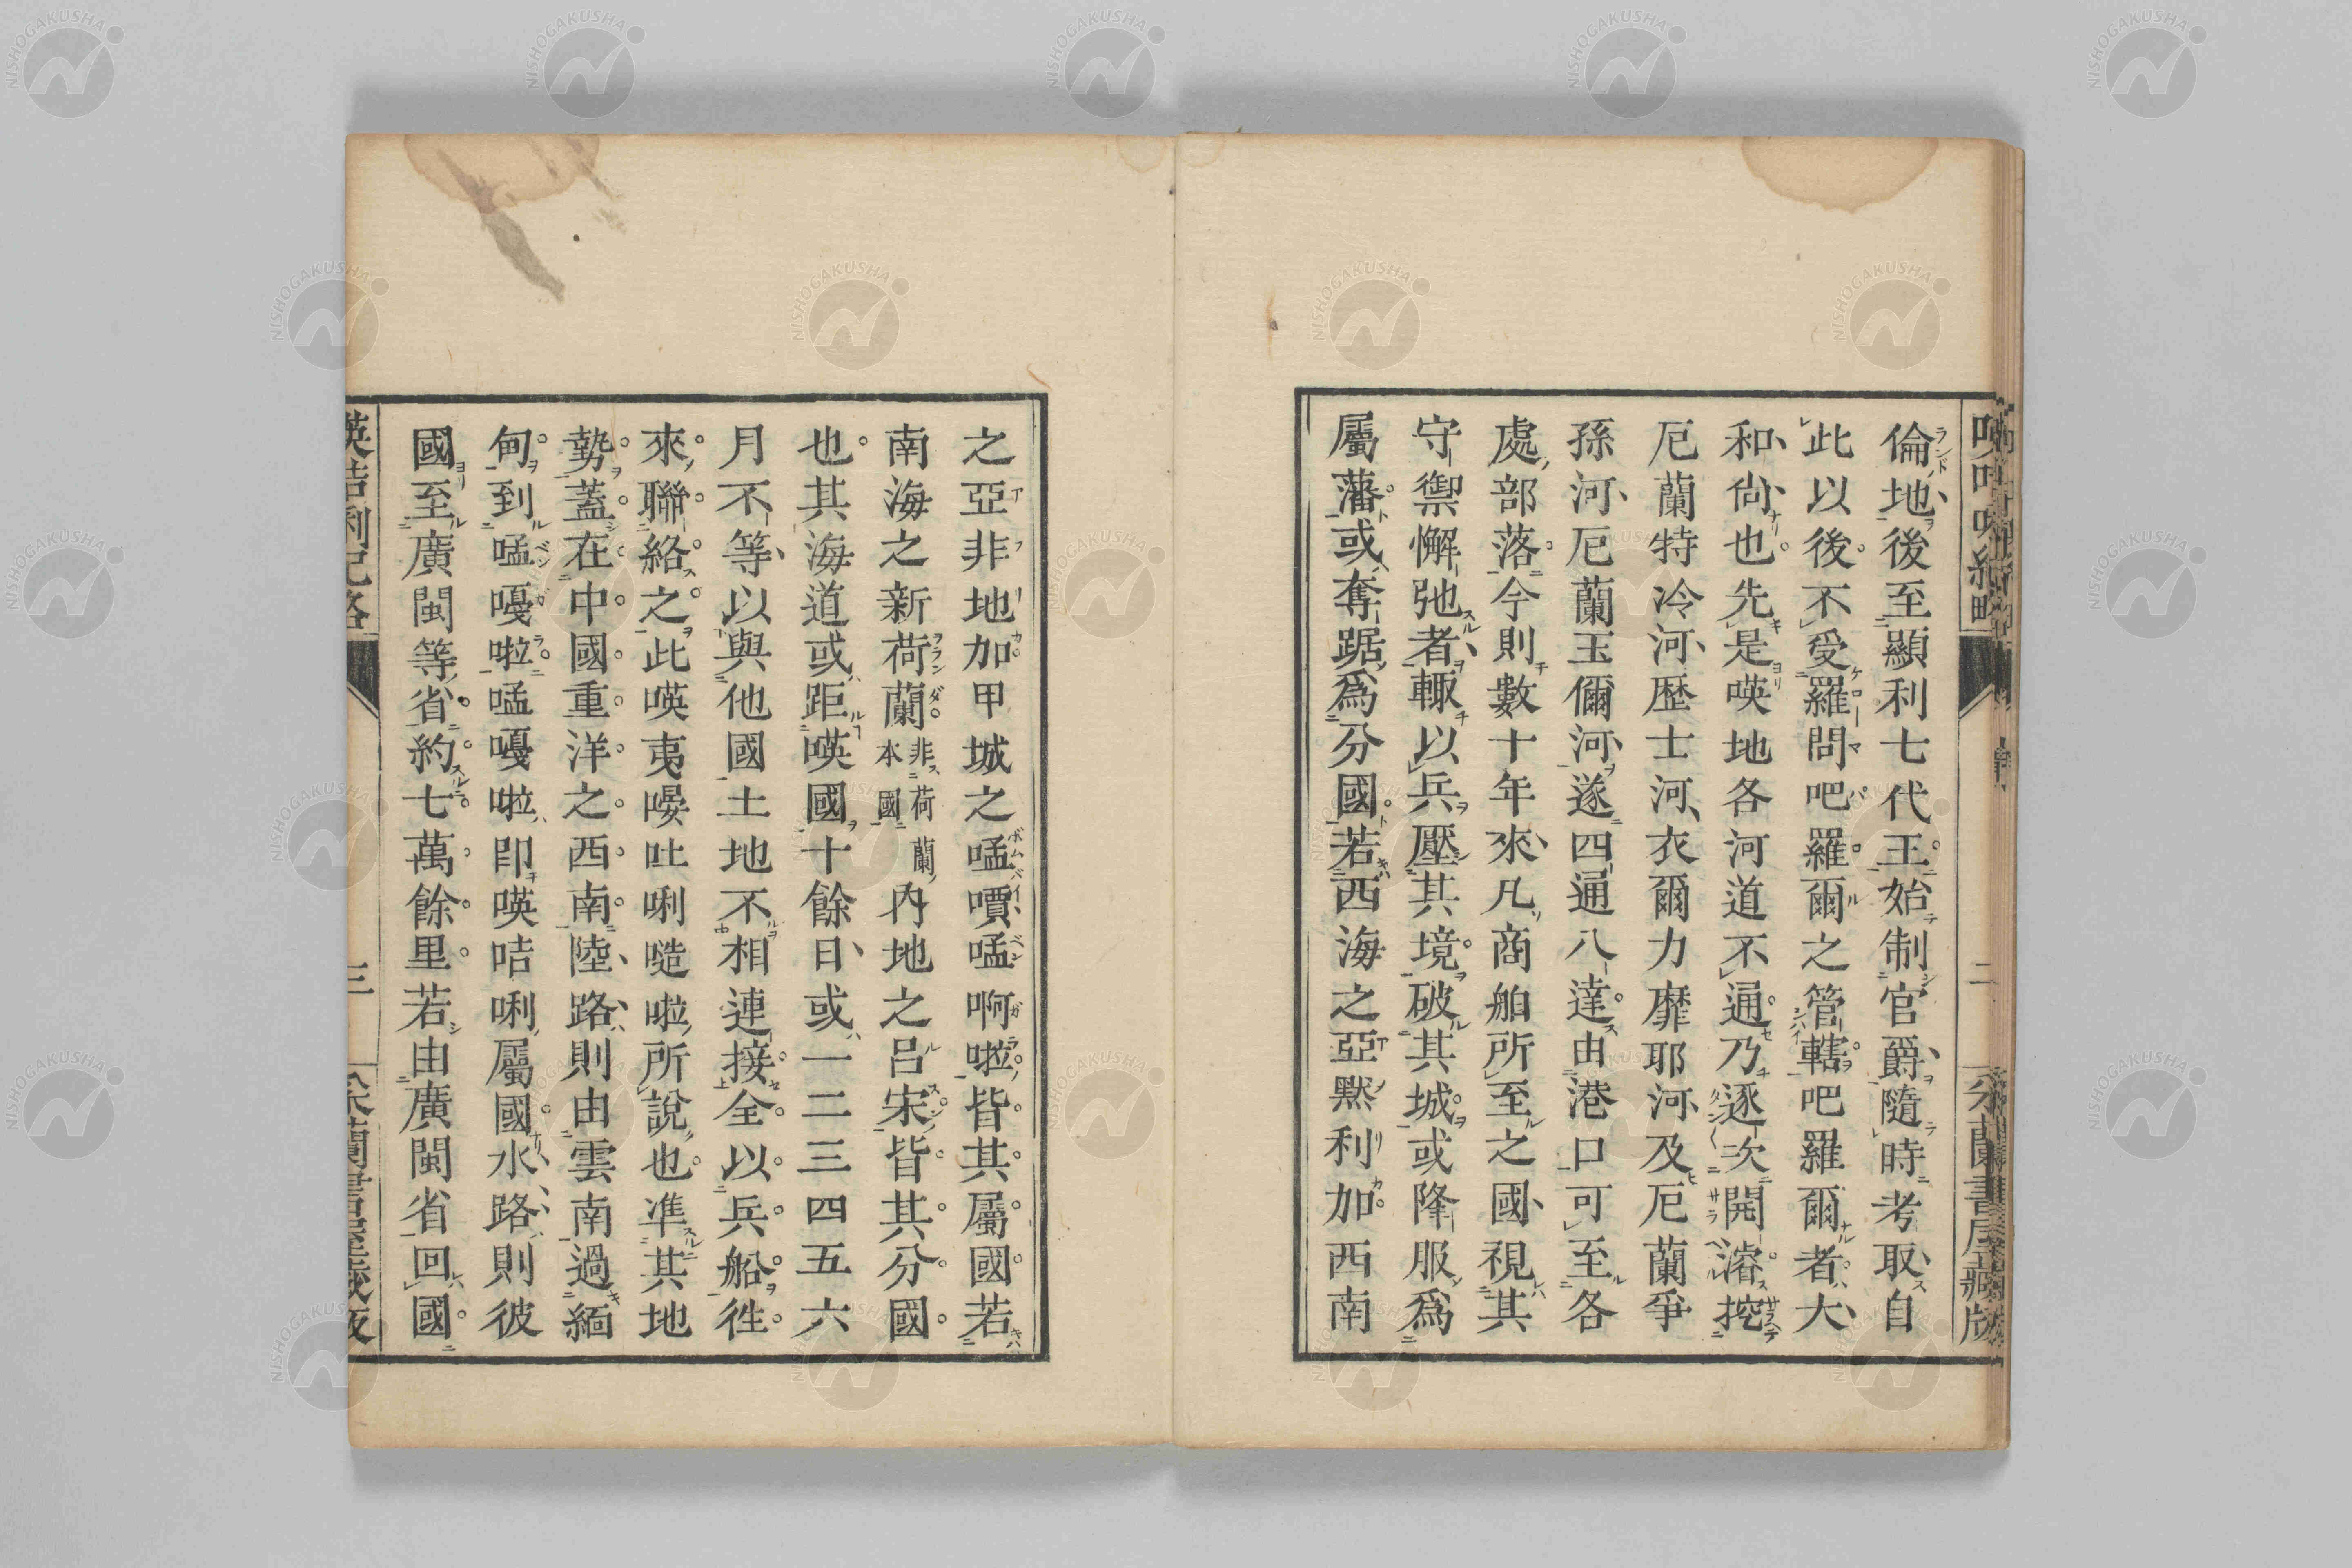 倫地後至顯利七代王始制官爵隨時考取自
此以後不受羅問吧羅爾之管轄吧羅爾者大
和尙也先是𠸄地各河道不通乃逐次開濬挖
厄蘭特冷河歷士河衣爾力靡耶河及厄蘭爭
孫河厄蘭玉儞河遂四通八達由港口可至各
處部落今則數十年來凡商舶所至之國視其
守禦懈弛者輙以兵壓其境破其城或降服爲
屬藩或奪踞爲分國若西海之亞黙利加西南
之亞非地加甲城之𠵼嘳𠵼啊啦皆其屬國若
南海之新荷蘭非荷蘭本國內地之呂宋皆其分國
也其海道或距𠸄國十餘日或一二三四五六
月不等以與他國土地不相連接全以兵船徃
來聯絡之此𠸄夷㗲吐唎𠹌啦所說也準其地
勢蓋在中國重洋之西南陸路則由雲南過緬
甸到𠵼嗄啦𠵼嗄啦卽𠸄咭唎屬國水路則彼
國至廣閩等省約七萬餘里若由廣閩省回國
三
NISHOGAKUSHA